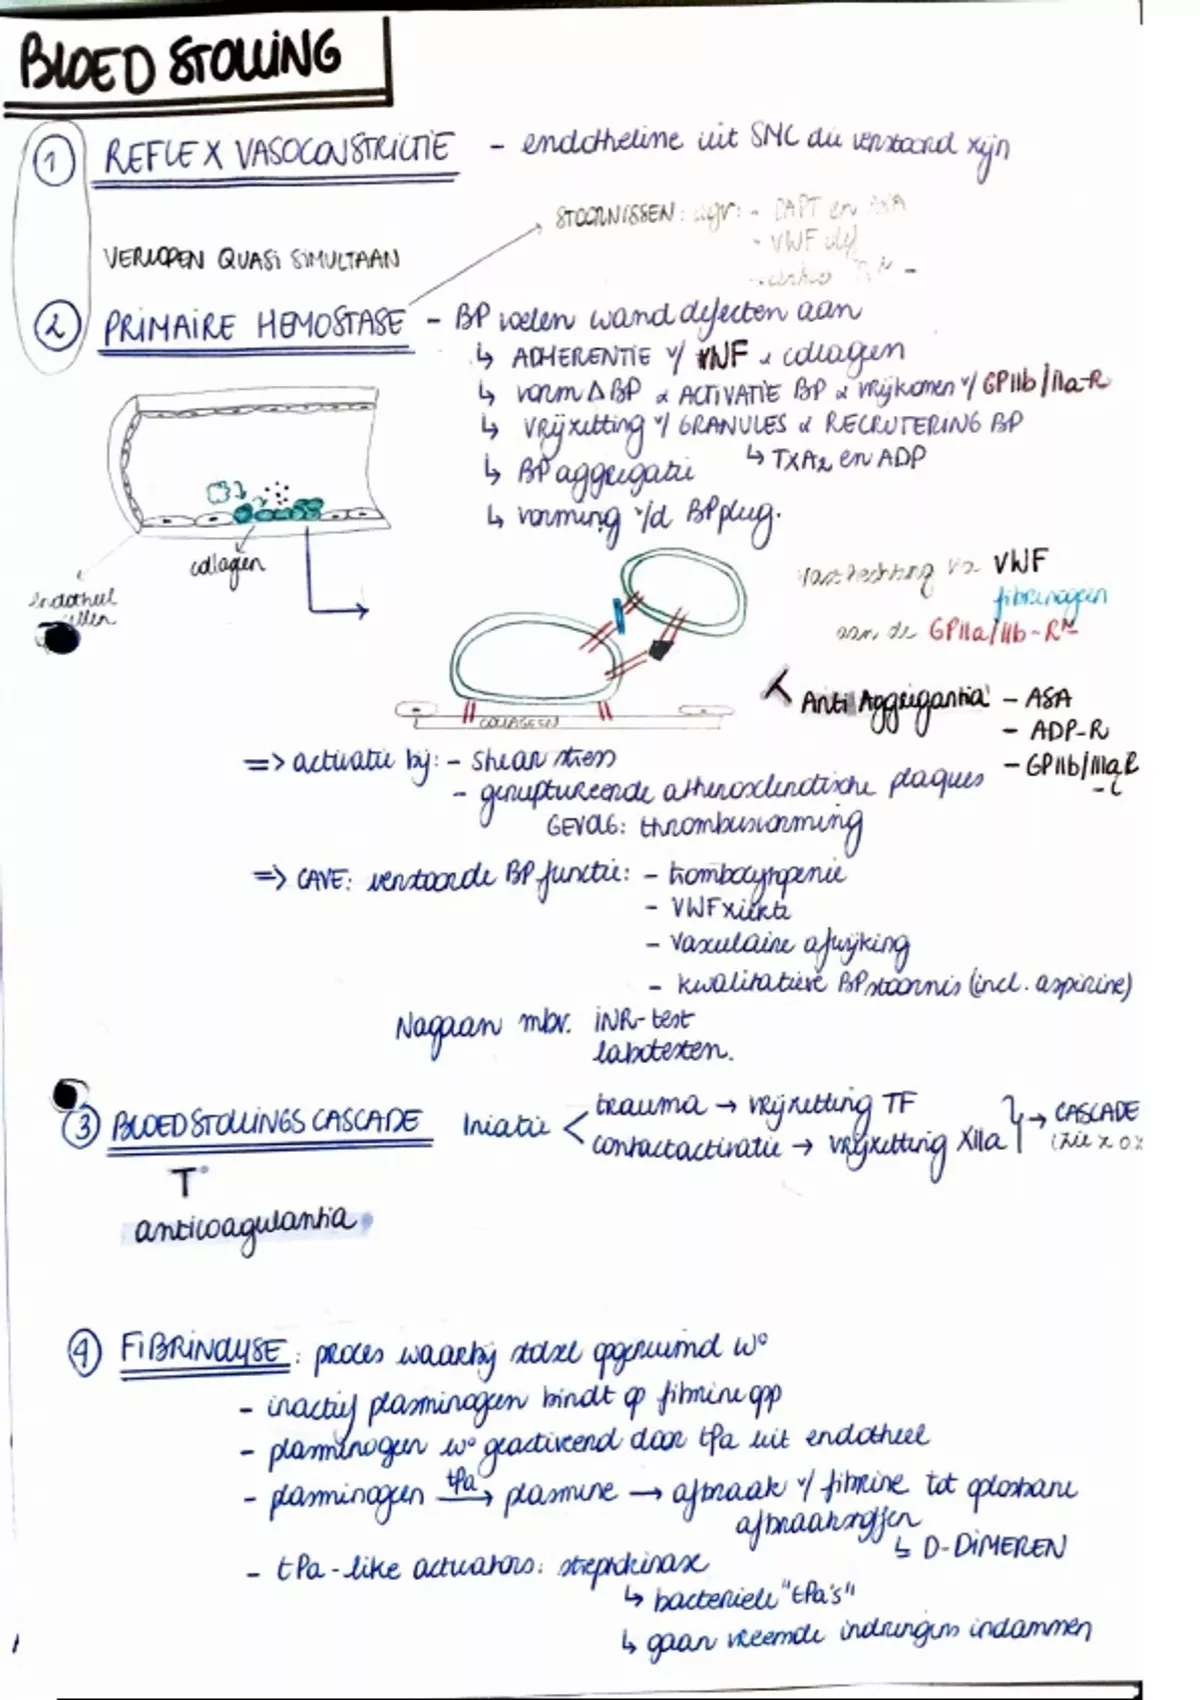 BLOEDSTOLLING
1 REFLEX VASOCONSTRICTIE - endotheline uit SMC die verstoord zijn
STOORNISSEN: agv: - DAPT en ASA
- VWF def
VERLOPEN QUASI SIMULTAAN
2 PRIMAIRE HEMOSTASE - BP voelen wanddefecten aan
↳ ADHERENTIE v/ VWF & collagen
↳ vorm Δ BP & ACTIVATIE BP & vrijkomen v/ GPIIb/IIIa-R
↳ vrijzetting v/ GRANULES & RECRUTERING BP
↳ TXA2 en ADP
↳ BP aggregatie
↳ vorming v/d BP plug.
collagen
endotheel
cellen
vasthechting via VWF
fibrinogen
aan de GPIIa/IIIb-RN
COLLAGEEN
Anti Aggregantia - ASA
- ADP-R
- GPIIb/IIIaR
- i
=> activatie bij: - shear stress
- geruptureerde atherosclerotische plaques
GEVOLG: thrombusvorming
=> CAVE: verstoorde BP functie: - trombocytopenie
- VWF ziekte
- vasculaire afwijking
- kwalitatieve BP stoornis (incl. aspirine)
Nagaan mbv. INR-test
labotesten.
3 BLOEDSTOLLINGS CASCADE Iniatie < trauma → vrijzetting TF
contactactivatie → vrijzetting XIIa } → CASCADE
(zie
anticoagulantia
4 FIBRINOLYSE: proces waarbij stolsel opgeruimd wo
- inactief plasminogeen bindt op fibrine opp
- plasminogeen wo geactiveerd door tPa uit endotheel
- plasminogeen tPa→ plasmine → afbraak v/ fibrine tot oplosbare
afbraakstoffen
↳ D-DIMEREN
- tPa-like activators: streptokinase
↳ bacteriele "tPa's"
↳ gaan vreemde indringers indammen